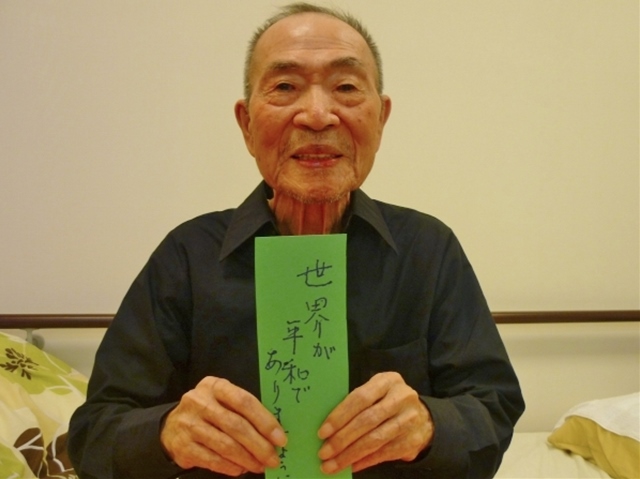 世界が
平和で
ありますように